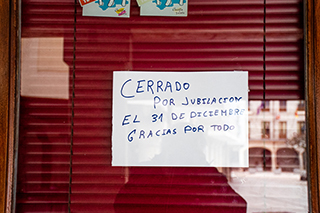 CERRADO
POR JUBILACION
EL 31 DE DICIEMBRE
GRACIAS POR TODO